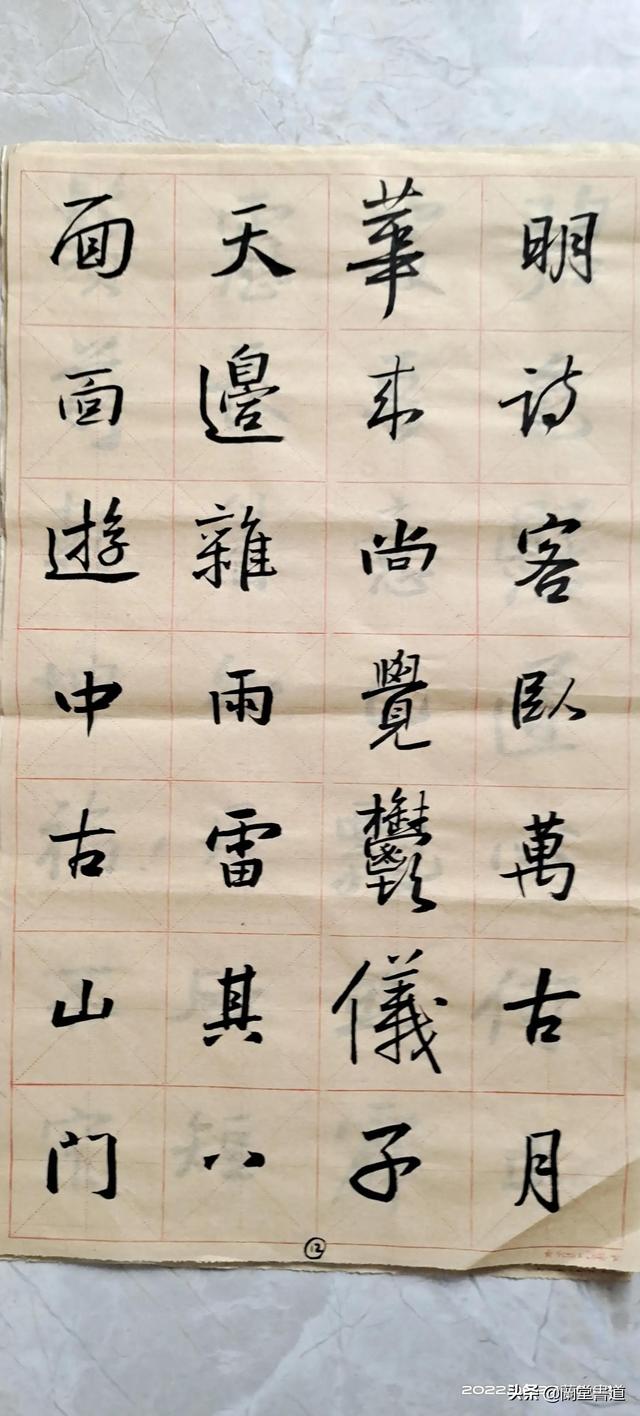 明詩客卧萬古月
華尚覺鬱儀子
天邊雜雨雷其八
面面遊中古山门
⑫
头条 @蘭堂書道